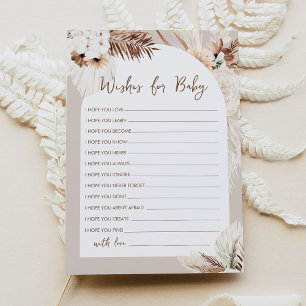 Wishes for Baby
I HOPE YOU LOVE
I HOPE YOU LEARN
I HOPE YOU BECOME
I HOPE YOU KNOW
I HOPE YOU NEVER
I HOPE YOU ALWAYS
I HOPE YOU IGNORE
I HOPE YOU NEVER FORGET
I HOPE YOU DON'T
I HOPE YOU AREN'T AFRAID
I HOPE YOU CREATE
I HOPE YOU FIND
with love